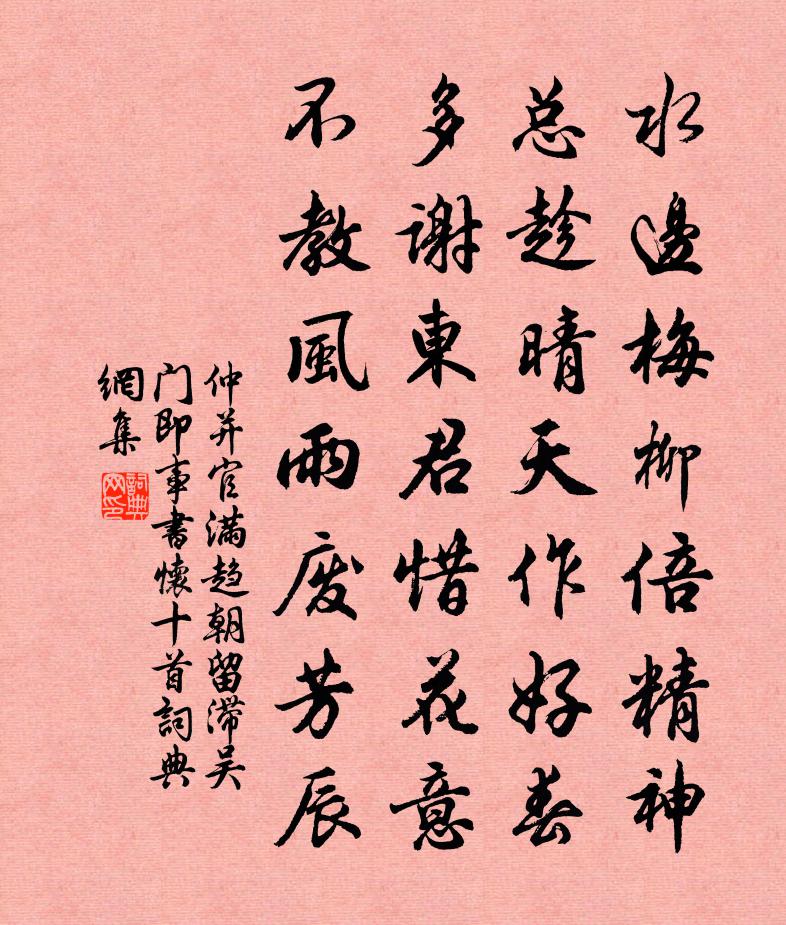 水邊梅柳倍精神
总趁晴天作好春
多謝東君惜花意
不教風雨废芳辰
仲并官满趋朝留滞吴
门即事書懷十首詞典
網集
詞典
网印